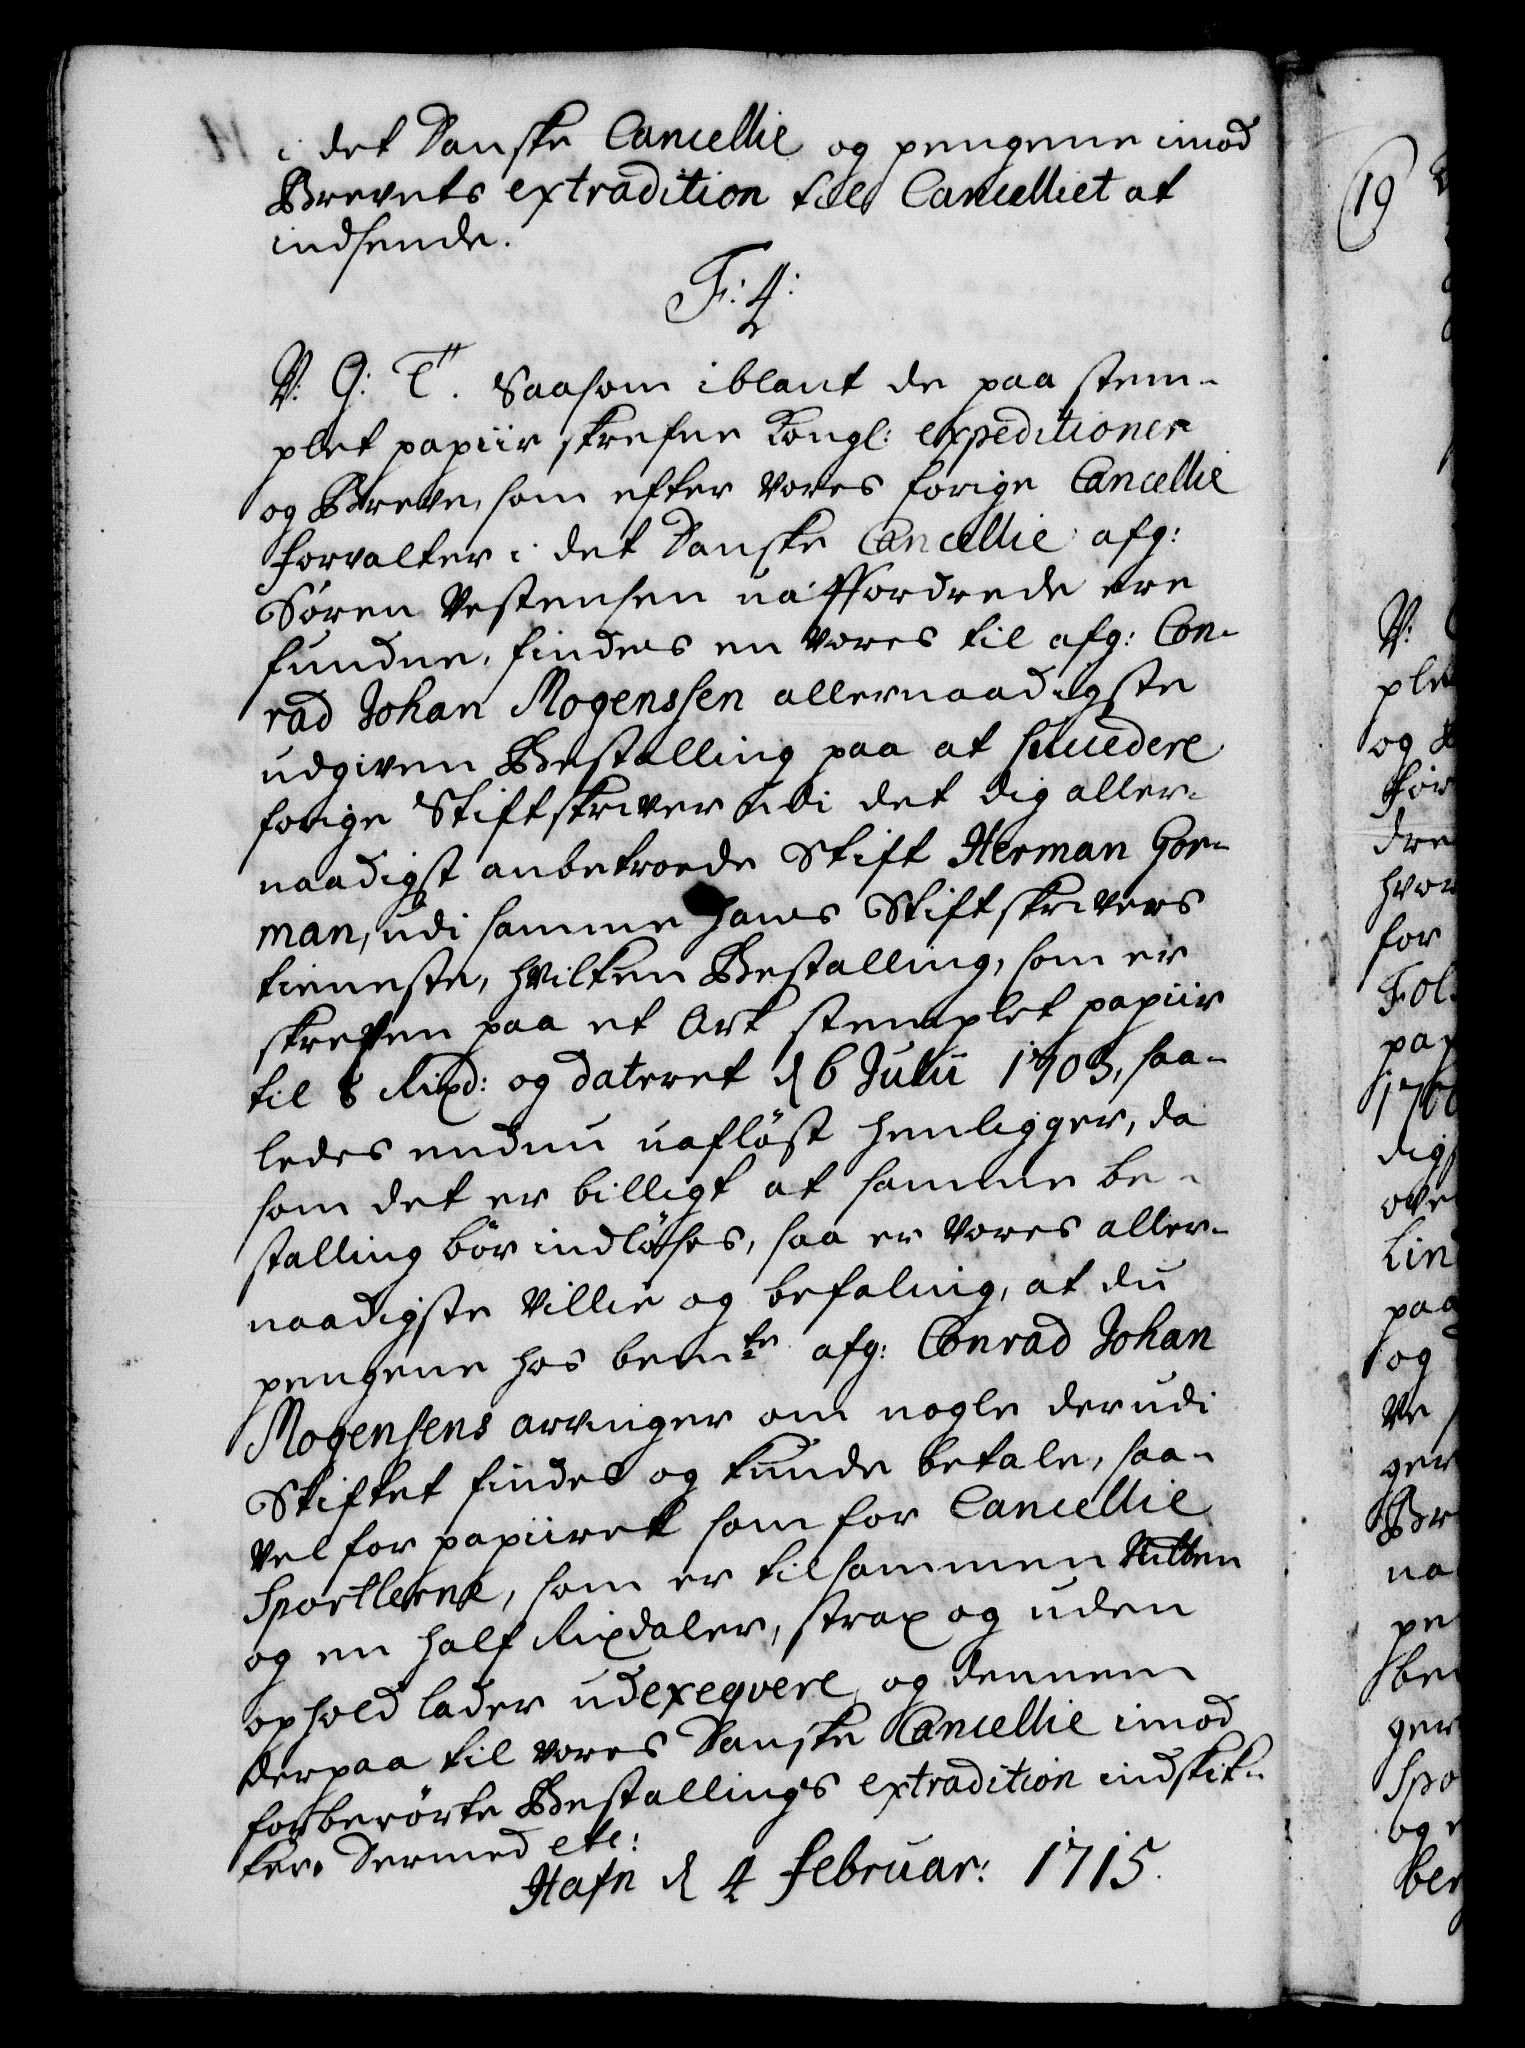 i det Danske Cancellie og pengene imod
Brevets extradition til Cancelliet at
indsende.
F: 4:
V: G: T. Saasom iblant de paa stem-
plet papiir skrefne Kongl: expeditioner
og Breve, som efter Vores forige Cancellie
forvalter i det Danske Cancellie afg:
Sören Vestensen uaffordrede ere
fundne, findes en Vores til afg: Con-
rad Johan Mogenssen allernaadigste
udgiven Bestalling paa at succedere
forige Stiftskriver udi det dig aller-
naadigst anbetroede Stift Herman Gor-
man, udi samme hans Stiftskrivers
tieneste, hvilken Bestalling, som er
skreven paa et Ark stemplet papiir
til 8 Rixd: og dateret d 6 Julii 1703, saa-
ledes endnu uaflöst henligger, da
som det er billigt at samme be-
stalling bör indlöses, saa er Vores aller-
naadigste Villie og befaling, at du
pengene hos bemte afg: Conrad Johan
Mogensens arvinger om nogle derudi
Stiftet findes og kunde betale, saa-
vel for papiiret som for Cancellie
Sportlerne, som er tilsammen Nitten
og en half Rixdaler, strax og uden
ophold lader udexeqvere, og dennem
derpaa til Vores Danske Cancellie imod
forberörte Bestallings extradition indskik-
ker. Dermed etc:
Hafn d 4 Februar: 1715.
19